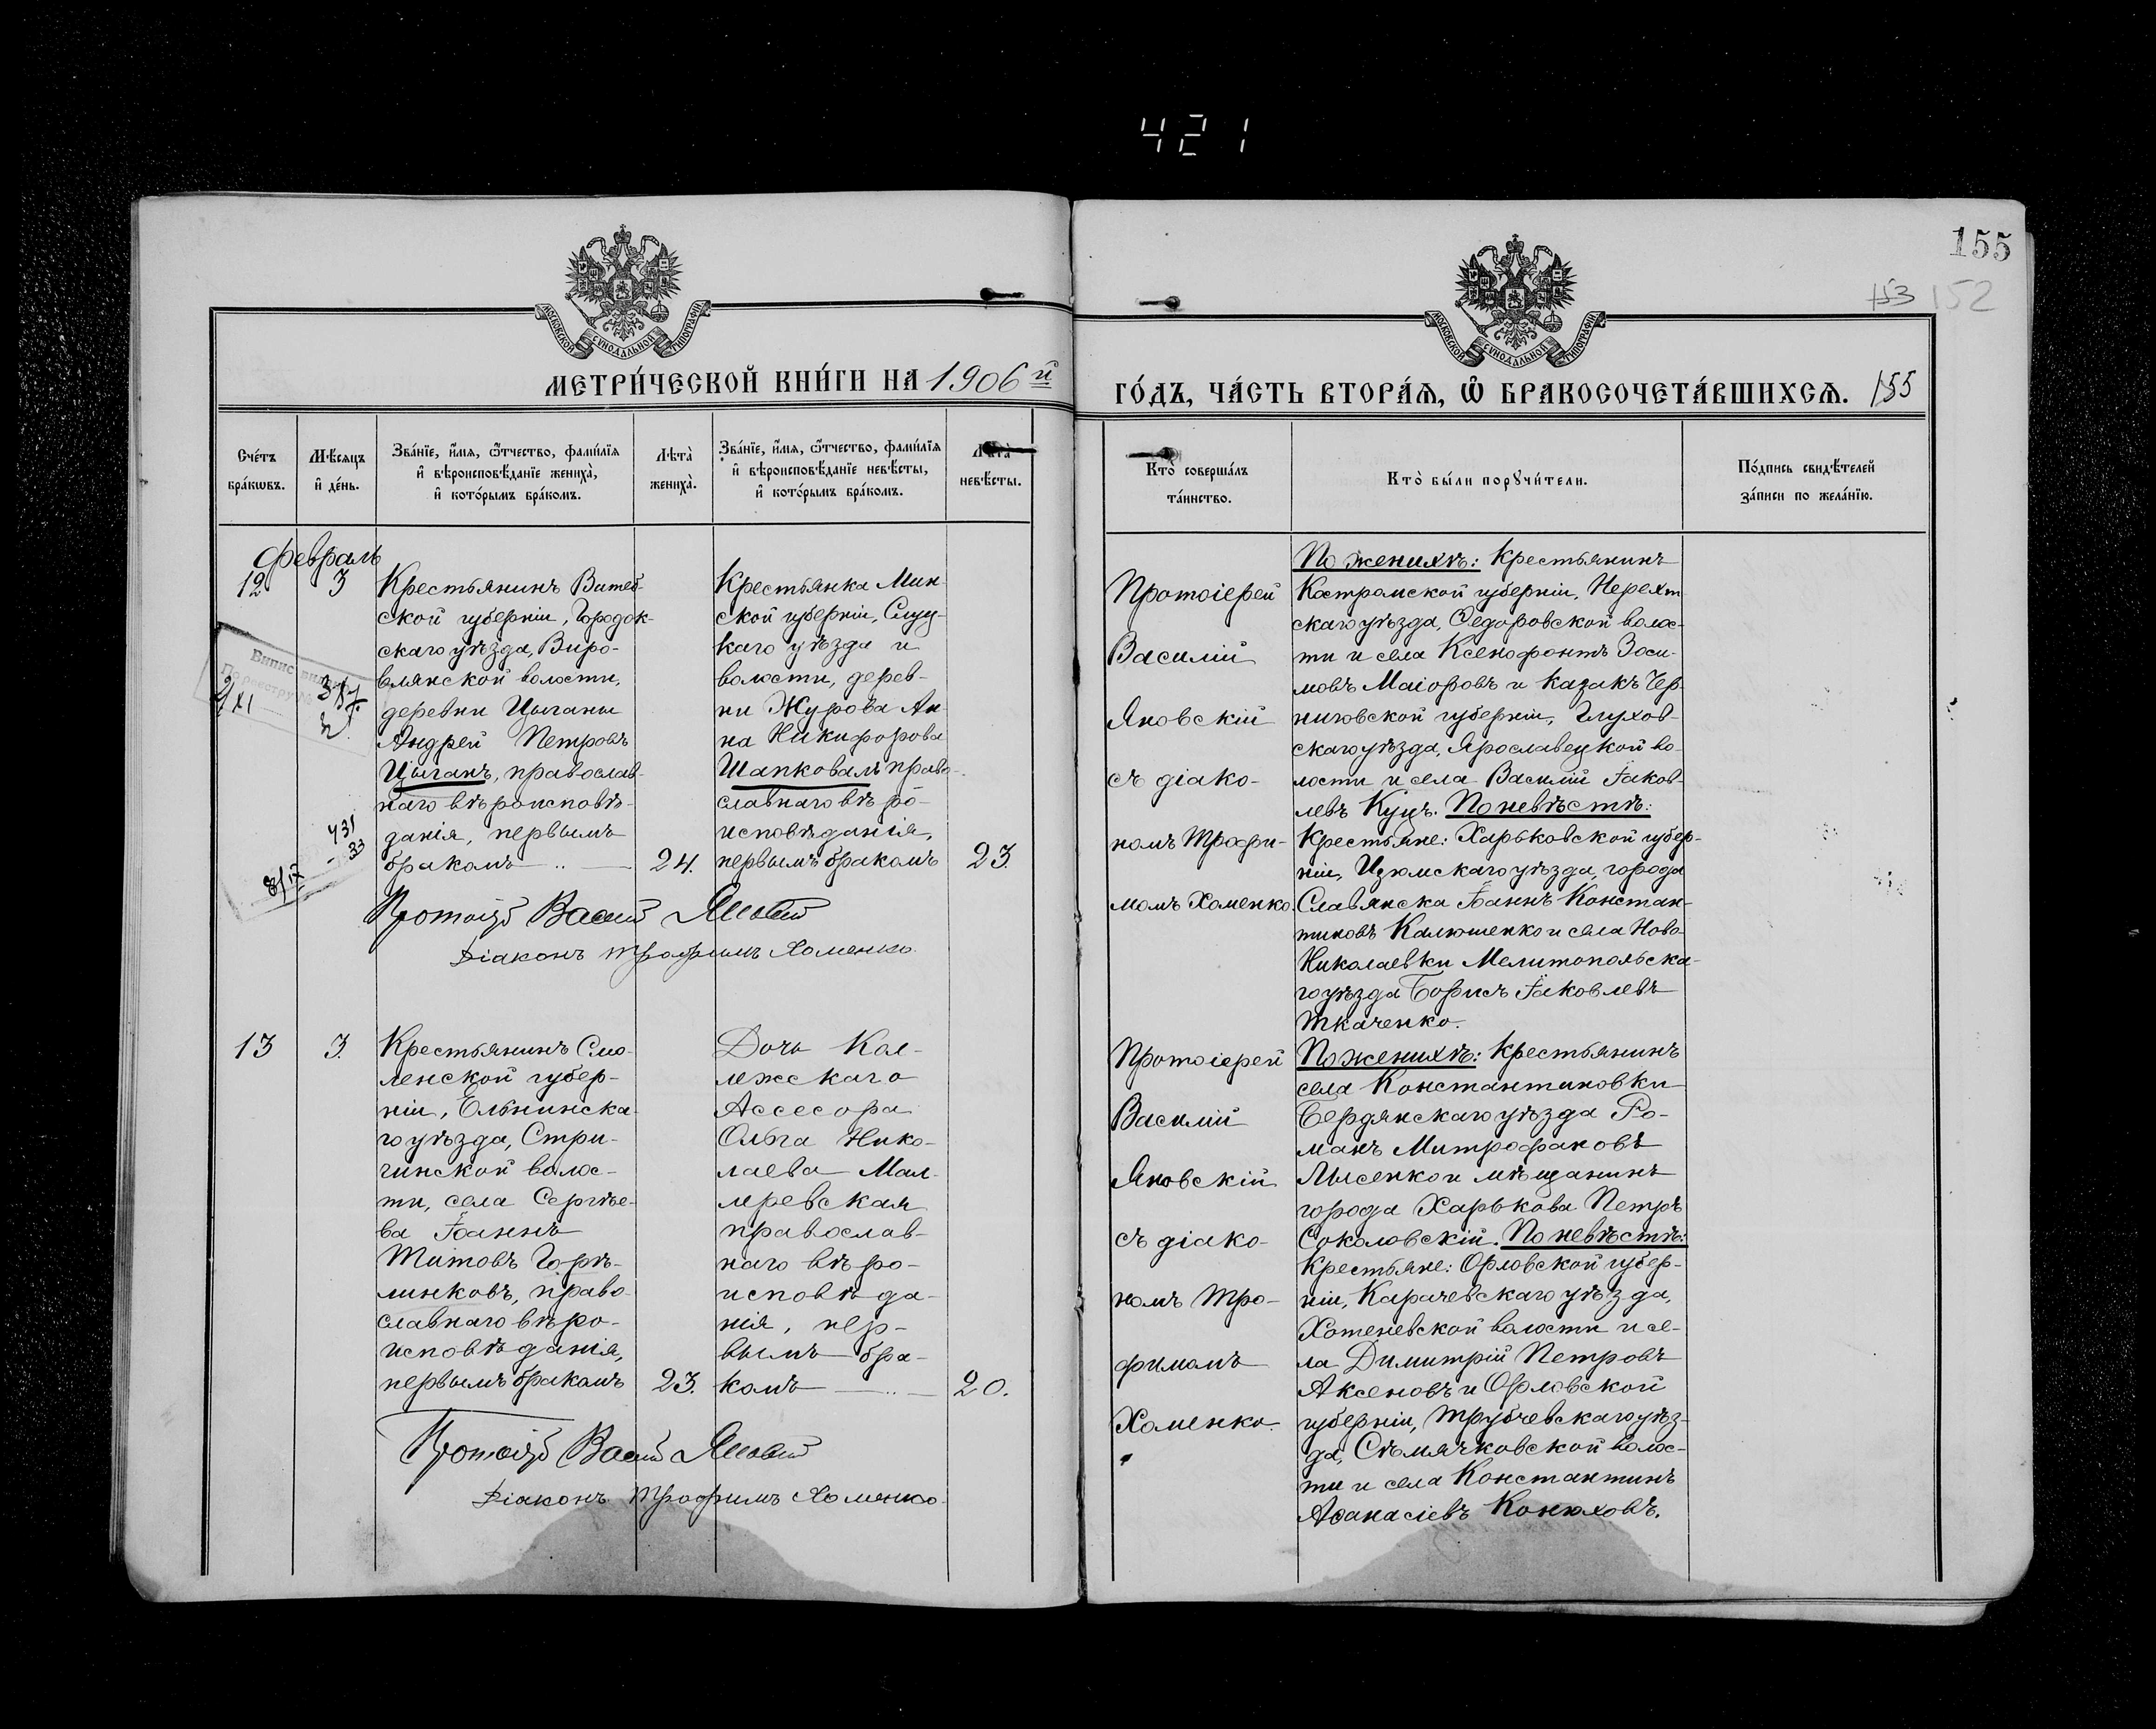 421
155
153 152
МОСКОВСКОЙ СѴНОДАЛЬНОЙ ТИПОГРАФІИ
МОСКОВСКОЙ СѴНОДАЛЬНОЙ ТИПОГРАФІИ
МЕТРИ́ЧЕСКОЙ КНИ́ГИ НА 1906й
ГО́ДЪ, ЧА́СТЬ ВТОРА́Ѧ, Ѡ҆ БРАКОСОЧЕТА́ВШИХСѦ. 155
Сче́тъ
бра́кѡвъ.
Мѣ́сяцъ
и҆ де́нь.
Зва́нїе, и҆́мя, ѻ҆́тчество, фами́лїя
и҆ вѣроисповѣ́данїе жениха̀,
и҆ кото́рымъ бра́комъ.
Лѣта̀
жениха̀.
Зва́нїе, и҆́мя, ѻ҆́тчество, фами́лїя
и҆ вѣроисповѣ́данїе невѣ́сты,
и҆ кото́рымъ бра́комъ.
Лѣта̀
невѣ́сты.
Кто̀ соверша́лъ
та́инство.
Кто̀ бы́ли порꙋчи́тели.
По́дпись свидѣ́телей
за́писи по жела́нїю.
Февраль
12 3
Крестьянинъ Витеб-
ской губерніи, Городок-
скаго уѣзда, Виро-
влянской волости,
деревни Цыганы
Андрей Петровъ
Цыганъ, православ-
наго вѣроисповѣ-
данія, первымъ
бракомъ 24.
Крестьянка Мин-
ской губерніи, Слуц-
каго уѣзда и
волости, дерев-
ни Журова Ан-
на Никифорова
Шапковалъ право-
славнаго вѣро-
исповѣданія,
первымъ бракомъ 23.
387
431
33
8/IX
Протоіер Васил Яновскій
Діаконъ Трофимъ Хоменко
Протоіерей
Василій
Яновскій
съ діако-
номъ Трофи-
момъ Хоменко.
По женихѣ: Крестьянинъ
Костромской губерніи, Нерехт
скаго уѣзда, Ѳедоровской волос-
ти и села Ксенофонтъ Зоси-
мовъ Маіоровъ и казакъ Чер-
ниговской губерніи, Глухов-
скаго уѣзда, Ярославецкой во-
лости и села Василій Іаков-
левъ Куцъ. По невѣстѣ:
Крестьяне: Харьковской губер-
ніи, Изюмскаго уѣзда, города
Славянска Іоаннъ Констан-
тиновъ Калюшенко и села Ново-
Николаевки Мелитопольска-
го уѣзда Борисъ Іаковлевъ
Ткаченко.
13 3.
Крестьянинъ Смо-
ленской губер-
ніи, Ельнинска-
го уѣзда, Стри-
гинской волос-
ти, села Сергѣе-
ва Іоаннъ
Титовъ Горѣ-
линковъ, право-
славнаго вѣро-
исповѣданія,
первымъ бракомъ 23.
Дочь Кол-
лежскаго
Ассесора
Ольга Нико-
лаева Мал-
иревская
православ-
наго вѣро-
исповѣда-
нія, пер-
вымъ бра-
комъ 20.
Протоіер Васил Яновскій
Діаконъ Трофимъ Хоменко
Протоіерей
Василій
Яновскій
съ діако-
номъ Тро-
фимомъ
Хоменко.
По женихѣ: Крестьянинъ
села Константиновки
Бердянскаго уѣзда Ро-
манъ Митрофановъ
Лысенко и мѣщанинъ
города Харькова Петръ
Соколовскій. По невѣстѣ:
Крестьяне: Орловской губер-
ніи, Карачевскаго уѣзда,
Хотеневской волости и се-
ла Димитрій Петровъ
Аксеновъ и Орловской
губерніи, Трубчевскаго уѣз-
да, Сѣмячковской волос-
ти и села Константинъ
Аѳанасіевъ Конюховъ.